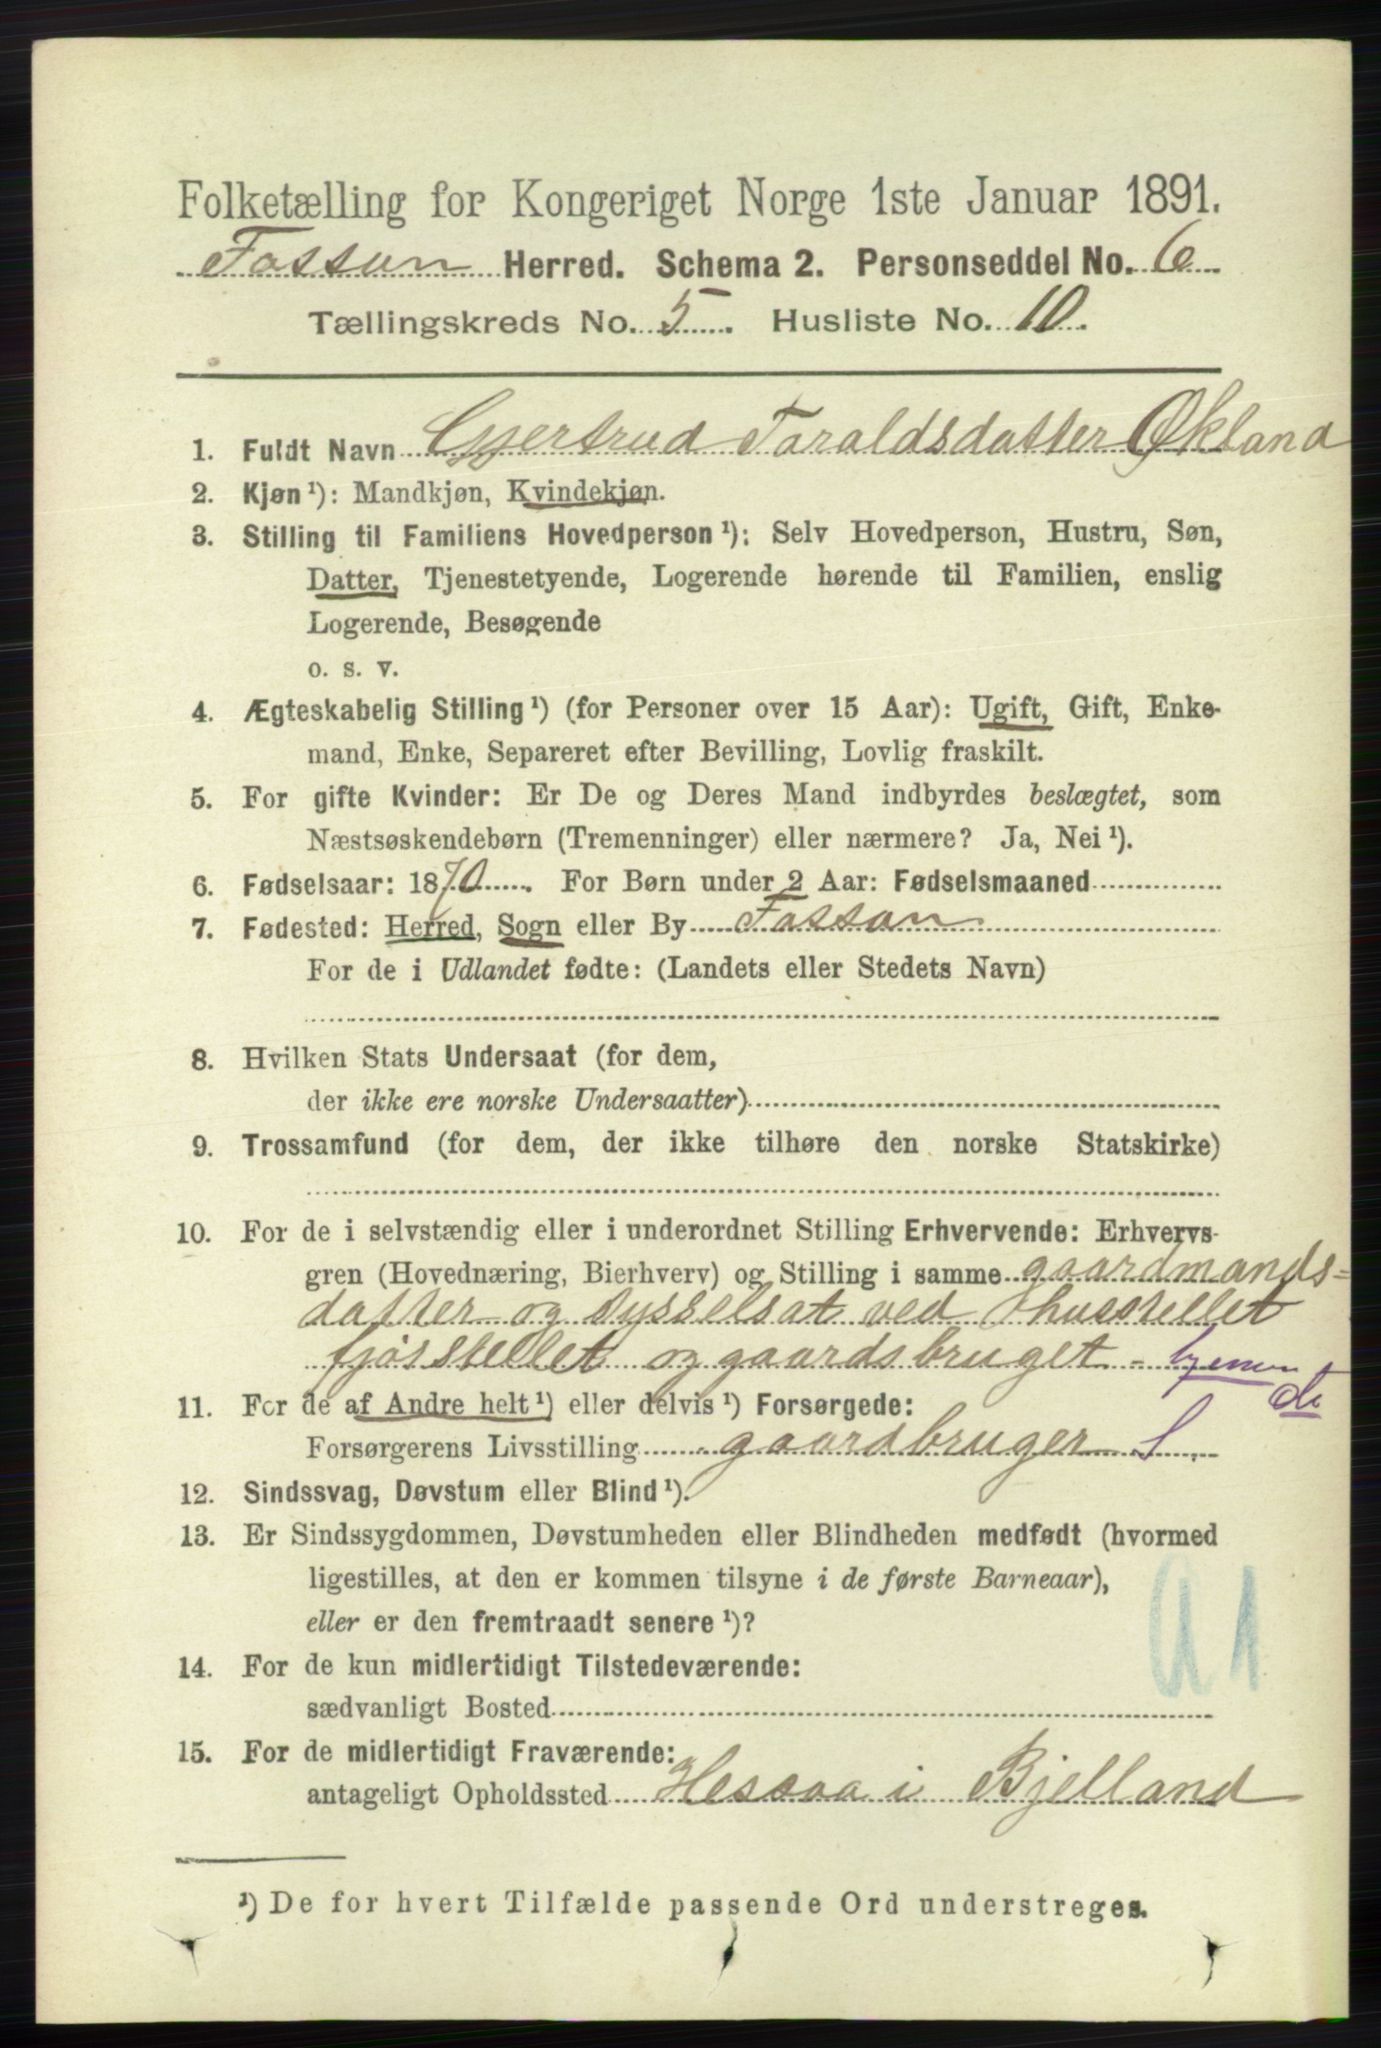 Folketælling for Kongeriget Norge 1ste Januar 1891.
Fossan Herred. Schema 2. Personseddel No. 6
Tællingskreds No. 5. Husliste No. 10.
1. Fuldt Navn Gjertrud Taraldsdatter Økland
2. Kjøn ¹): Mandkjøn, Kvindekjøn.
3. Stilling til Familiens Hovedperson ¹): Selv Hovedperson, Hustru, Søn,
Datter, Tjenestetyende, Logerende hørende til Familien, enslig
Logerende, Besøgende
o. s. v.
4. Ægteskabelig Stilling ¹) (for Personer over 15 Aar): Ugift, Gift, Enke-
mand, Enke, Separeret efter Bevilling, Lovlig fraskilt.
5. For gifte Kvinder: Er De og Deres Mand indbyrdes beslægtet, som
Næstsøskendebørn (Tremenninger) eller nærmere? Ja, Nei ¹).
6. Fødselsaar: 1870. For Børn under 2 Aar: Fødselsmaaned
7. Fødested: Herred, Sogn eller By Fossan
For de i Udlandet fødte: (Landets eller Stedets Navn)
8. Hvilken Stats Undersaat (for dem,
der ikke ere norske Undersaatter)
9. Trossamfund (for dem, der ikke tilhøre den norske Statskirke)
10. For de i selvstændig eller i underordnet Stilling Erhvervende: Erhvervs-
gren (Hovednæring, Bierhverv) og Stilling i samme gaardmands-
datter og sysselsat ved husstellet
fjøsstellet og gaardsbruget - hjemme
do
11. For de af Andre helt ¹) eller delvis ¹) Forsørgede:
Forsørgerens Livsstilling gaardbruger S
12. Sindssvag, Døvstum eller Blind ¹).
13. Er Sindssygdommen, Døvstumheden eller Blindheden medfødt (hvormed
ligestilles, at den er kommen tilsyne i de første Barneaar),
eller er den fremtraadt senere ¹)?
a 1
14. For de kun midlertidigt Tilstedeværende:
sædvanligt Bosted
15. For de midlertidigt Fraværende:
antageligt Opholdssted Hesaa i Bjelland
¹) De for hvert Tilfælde passende Ord understreges.